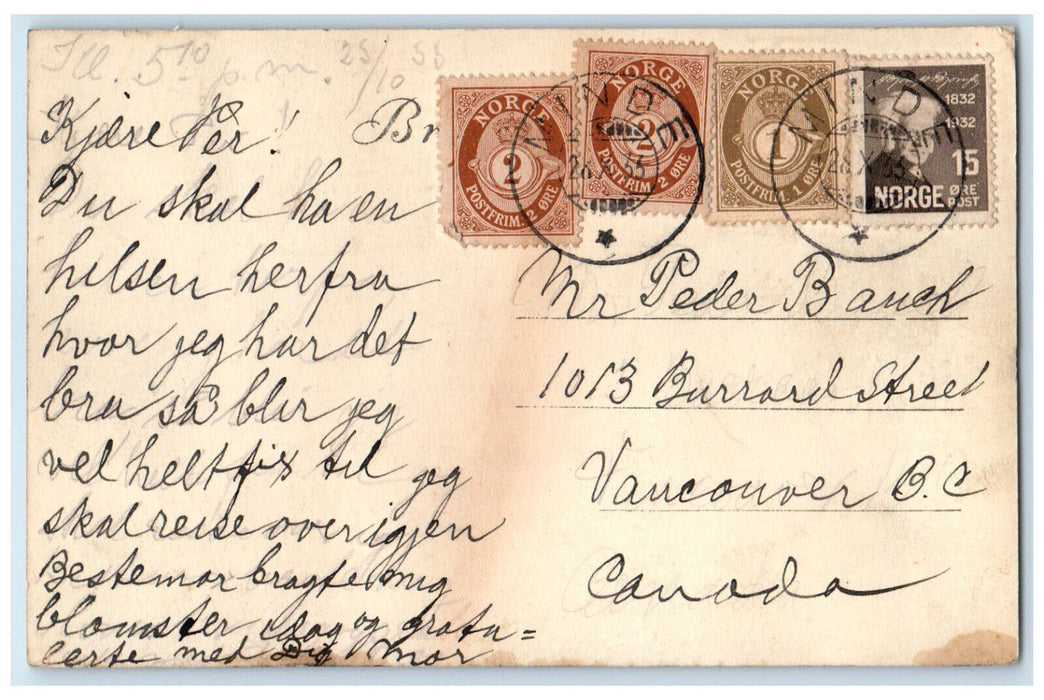 Kl. 5 10 p.m. 25/10
Kjære Per! Br
Du skal ha en
hilsen herfra
hvor jeg har det
bra så blir jeg
vel helt fix til jeg
skal reise over igjen
Bestemor bragte mig
blomster idag og gratu=
lerte med Dig Mor
NORGE
2 2
POSTFRIM. 2 ØRE
NORGE
2
POSTFRIM. 2 ØRE
NORGE
1
POSTFRIM. 1 ØRE
1832
1932
15
NORGE ØRE
POST
MINDE
MINDE
Mr Peder Bauch
1013 Burrard Street
Vancouver B.C
Canada